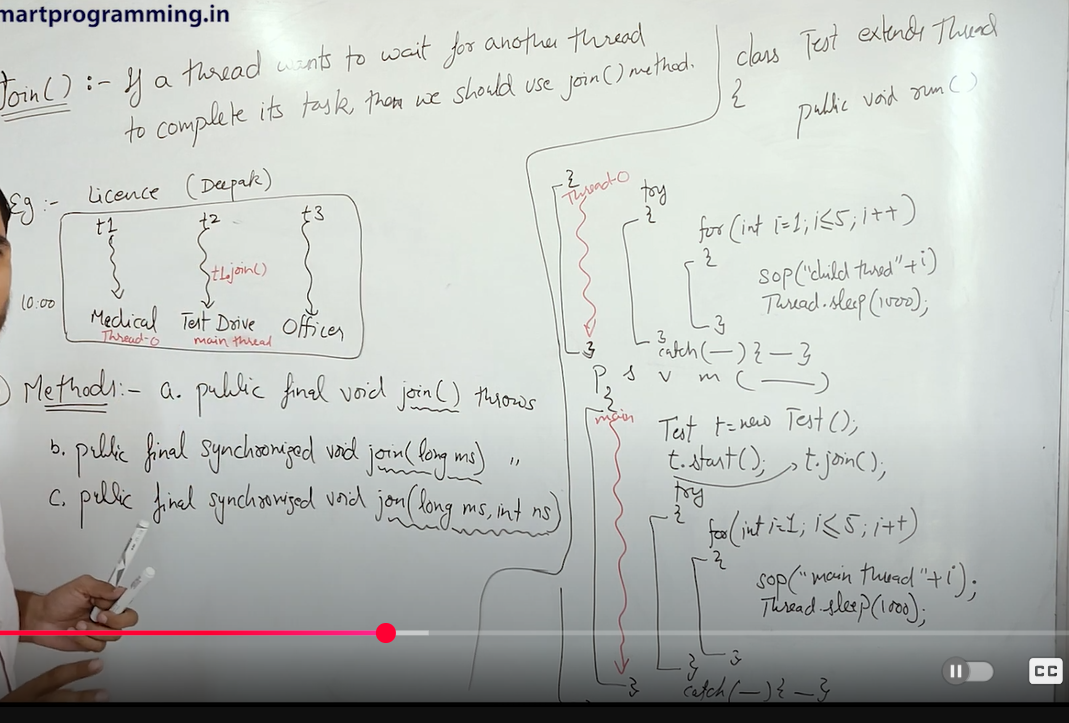 martprogramming.in
Join() :- If a thread wants to wait for another thread
to complete its task, then we should use join() method.
Eg :- Licence (Deepak)
t1 t2 t3
t1.join()
10:00
Medical Test Drive Officer
Thread-0 main thread
Methods:- a. public final void join() throws
b. public final synchronized void join(long ms) "
c. public final synchronized void join(long ms, int ns)
class Test extends Thread
{
public void run()
{
Thread-0
try
{
for(int i=1; i≤5; i++)
{
sop("child thred"+i)
Thread.sleep(1000);
}
}
catch(—){—}
}
P S V m (——)
{
main
Test t=new Test();
t.start(); t.join();
try
{
for(int i=1; i≤5; i++)
{
sop("main thread"+i);
Thread.sleep(1000);
}
}
catch(—){—}
}
CC